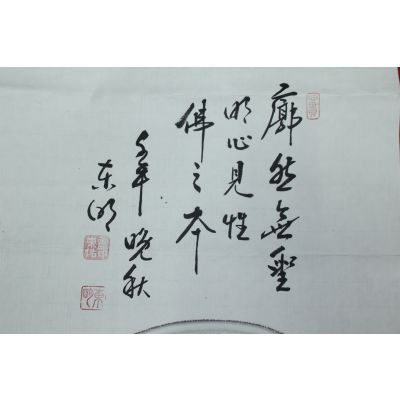 廓然無聖
明心見性
佛之本
壬午 晚秋
东明